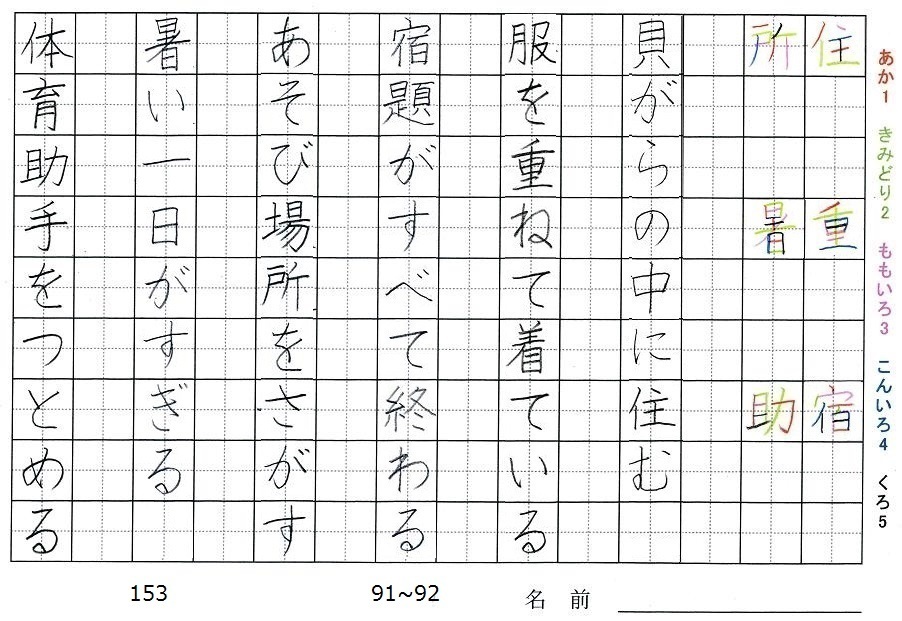 あか1 きみどり2 ももいろ3 こんいろ4 くろ5
住 重 宿
所 暑 助
貝がらの中に住む
服を重ねて着ている
宿題がすべて終わる
あそび場所をさがす
暑い一日がすぎる
体育助手をつとめる
153 91~92 名前